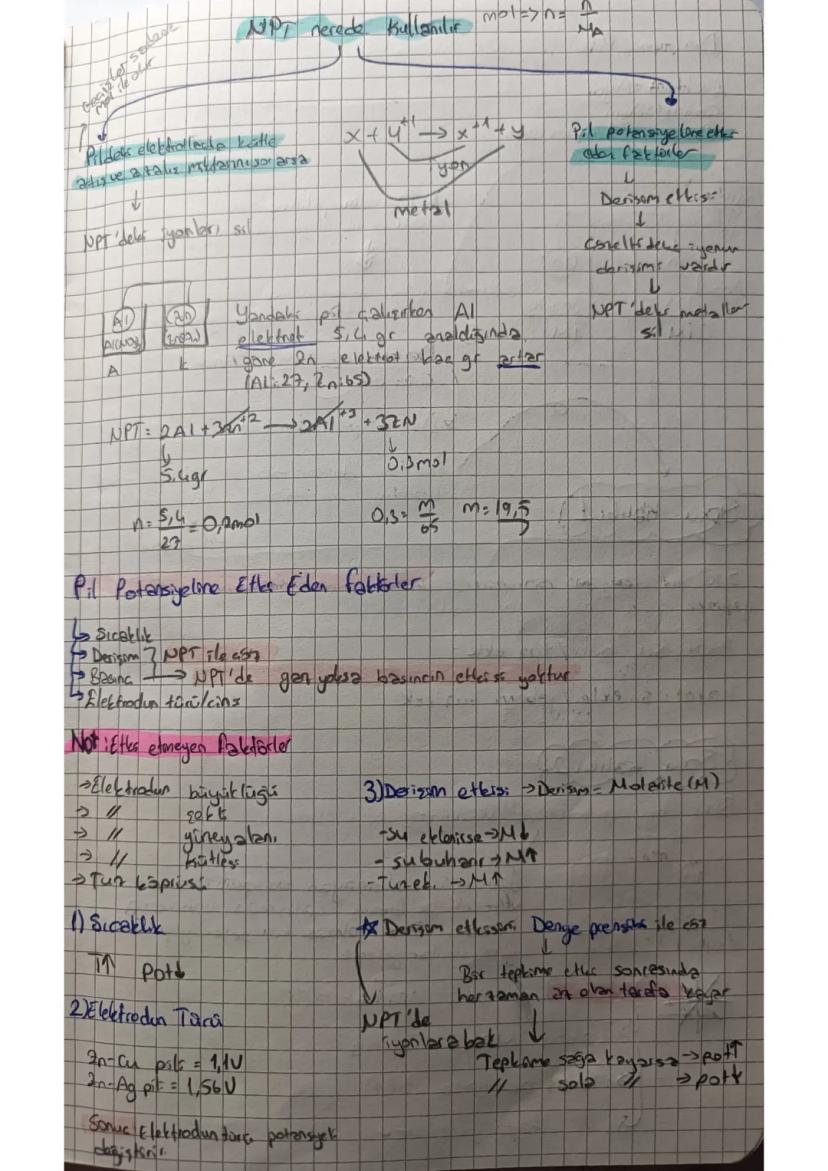 NPT nerede Kullanılır mol=>n= n/MA
Pildeki elektrotlarda kütle
artış ve azalış miktarını sorarsa
↓
NPT'deki iyonları sil
x + y⁺¹ → x⁺¹ + y
iyon
metal
Pil potansiyeline etki
eden faktörler
↓
Derişim etkisi
↓
Çözeltideki iyonun
derişimi vardır
↓
NPT'deki metaller
sil
Al Zn
A k
Yandaki pil çalışırken Al
elektrot 5,4 gr azaldığında
göre Zn elektrot kaç gr artar
(Al:27, Zn:65)
NPT= 2Al + 3Zn⁺² → 2Al⁺³ + 3ZN
↓ ↓
5,4gr 0,3mol
n= 5,4/27 = 0,2mol 0,3= m/65 m=19,5
Pil Potansiyeline Etki Eden faktörler
↳ Sıcaklık
→ Derişim } NPT ile çöz
→ Basınç → NPT'de gaz yoksa basıncın etkisi yoktur
↳ Elektrodun türü/cinsi
Not: Etki etmeyen faktörler
→ Elektrodun büyüklüğü
→ //
→ // yüzey alanı
→ // kütlesi
→ Tuz köprüsü
3) Derişim etkisi → Derişim = Molarite (M)
-su eklenirse → M↓
- su buharı → M↑
-Tuz ek. → M↑
1) Sıcaklık
T↑ Pot↓
2) Elektrodun Türü
Zn-Cu pili = 1,1V
Zn-Ag pil = 1,56V
Sonuç Elektrodun türü potansiyel
değiştirir.
☆ Derişim etkisini Denge prensibi ile çöz
↓
Bir tepkime etki sonrasında
her zaman az olan tarafa kayar
NPT'de
iyonlara bak
↓
Tepkime sağa kayarsa → pot↑
// sola // → pot↓